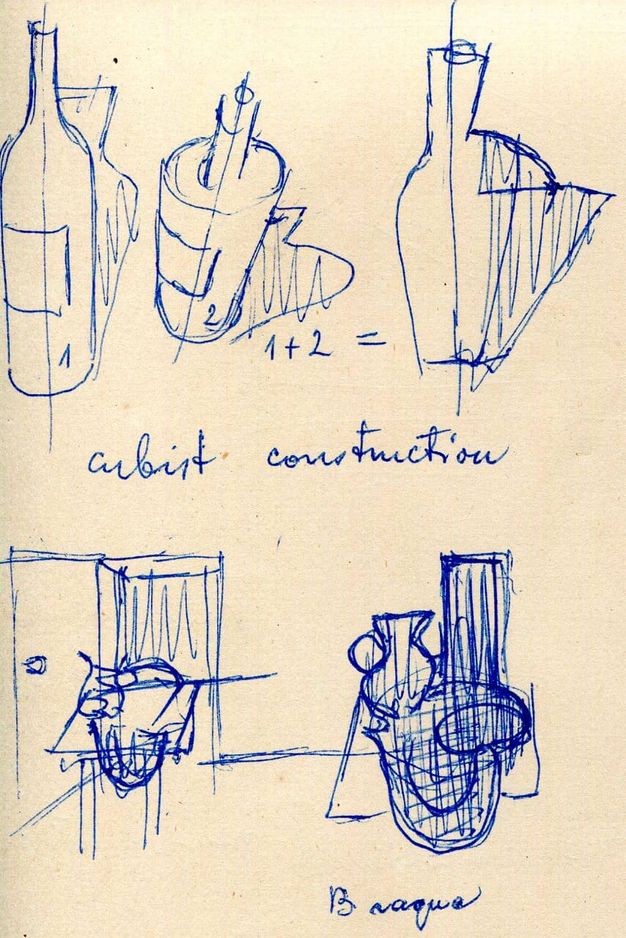 1
2
1+2 =
cubist construction
Braque